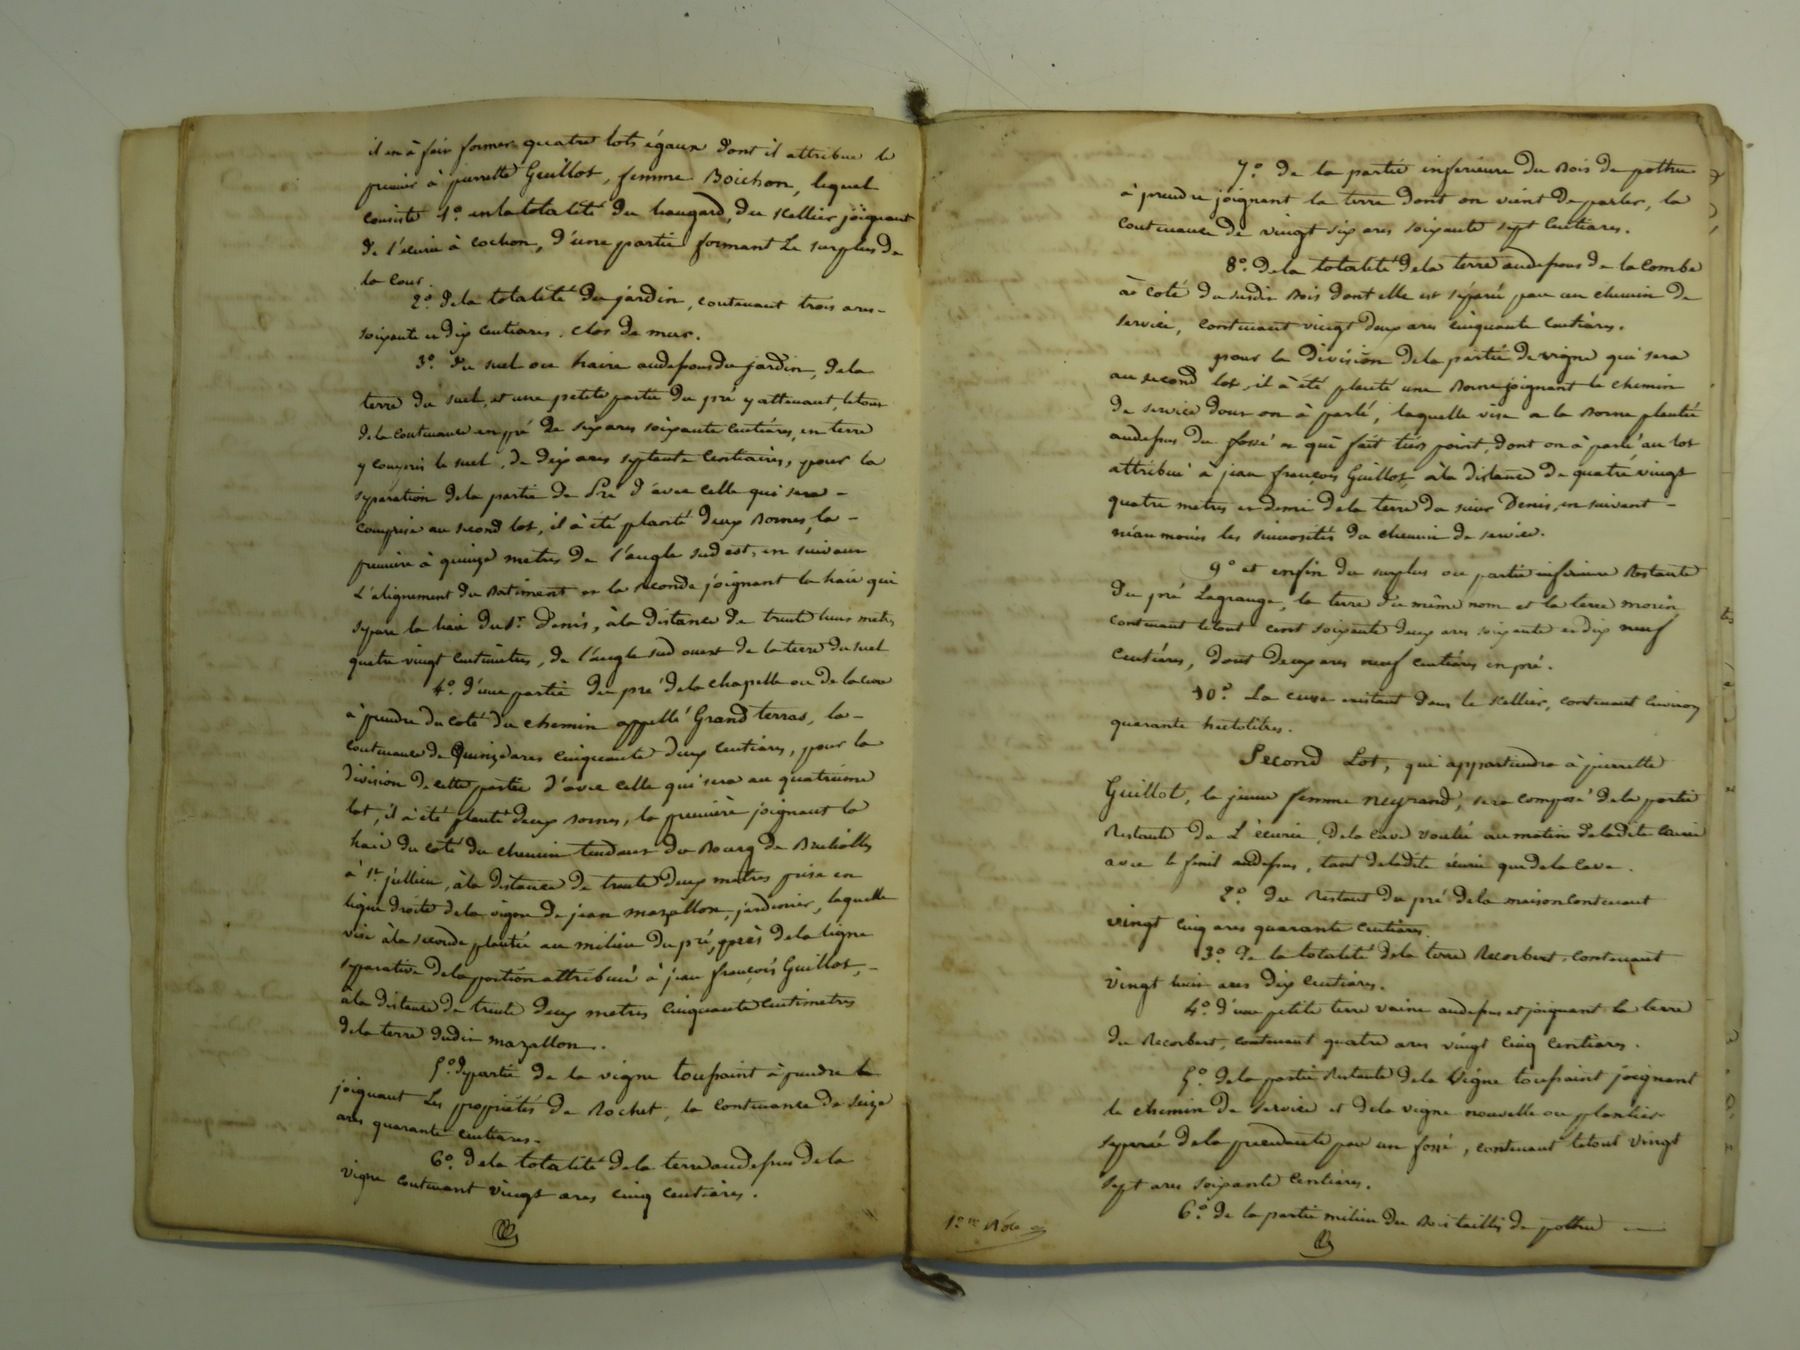 il en à fait former quatre lots égaux dont il attribue le
premier à pierrette Guillot, femme Boichon, lequel
consiste 1º. en la totalité du hangard, du scellier joignant
de l'écurie à cochon, d'une partie formant le surplus de
la cour.
2º. de la totalité du jardin, contenant trois ares
soixante et dix centiares, clos de mur.
3º. du suel ou haire audessous du jardin, de la
terre du suel, et une petite partie du pré y attenant, letout
dela contenance en pré de six ares soixante centiares, en terre
y compris le suel, de dix ares septante centiares, pour la
séparation dela partie de Pré d'avec celle qui sera
comprise au second lot, il à été planté deux Bornes, la
première à quinze metres de l'angle sud est, en suivant
L'alignement du Batiment et la seconde joignant la haie qui
sépare la haie du Sr. Denis, àla distance de trente huit metres
quatre vingt centimetres, de l'angle sud ouest de la terre du suel
4º. d'une partie du pré dela chapelle ou de la cure
à prendre du coté du chemin appellé Grand terras, la
contenance de Quinze ares cinquante deux centiares, pour la
division de cette partie d'avec celle qui sera au quatrième
lot, il à été planté deux bornes, la première joignant la
haie du coté du chemin tendant du Bourg de Brulliolles
à St. jullien, àla distance de trente deux metres prise en
ligne droite dela vigne de jean mazallon, jardinier, laquelle
vise àla seconde plantée au milieu du pré, près dela ligne
séparative dela portion attribuée à jean françois Guillot,
àla distance de trente deux metres cinquante centimetres
dela terre dudit mazallon.
5º. de partie de la vigne toussaint à prendre
joignant les propriétés de Rochet, la contenance de seize
ares quarante centiares.
6º. dela totalité dela terre audessus dela
vigne contenant vingt ares cinq centiares.
7º. de la partie inferieure du Bois de pothu
à prendre joignant la terre dont on vient de parler, la
contenance de vingt six ares soixante sept centiares.
8º. dela totalité dela terre audessous de la combe
à coté du susdit Bois dont elle est séparée par un chemin de
service, contenant vingt deux ares cinquante centiares.
pour la division dela partie de vigne qui sera
au second lot, il à été planté une Borne joignant le chemin
de service dont on à parlé, laquelle vise a la Borne plantée
audessus du fossé et qui fait tiers point, dont on à parlé au lot
attribué a jean françois Guillot àla distance de quatre vingt
quatre metres et demi dela terre du sieur Denis, en suivant
néanmoins les sinuosités du chemin de service.
9º et enfin du surplus ou partie inferieure Restante
du pré Lagrange, la terre du même nom et la terre morin,
contenant letout cent soixante deux ares soixante et dix neuf
centiares, dont deux ares neuf centiares en pré.
10º. La cuve existant dans le scellier, contenant environ
quarante hectolitres.
Second Lot, qui appartiendra à pierrette
Guillot, la jeune femme neyrand, sera composé dela partie
Restante de L'écurie, dela cave voutée au matin de ladite écurie
avec le fenil audessus, tant de ladite écurie que dela cave.
2º. du Restant du pré dela maison contenant
vingt cinq ares quarante centiares.
3º. de la totalité dela terre Recorbert, contenant
vingt huit ares dix centiares.
4º. d'une petite terre vaine audessus et joignant la terre
du Recorbert, contenant quatre ares vingt cinq centiares.
5º. dela partie Restante dela Vigne toussaint joignant
le chemin de service et dela vigne nouvelle ou plantier
séparée dela précédente par un fossé, contenant letout vingt
sept ares soixante centiares.
6º. de la partie milieu du Bois taillis de pothu
12me Rôle